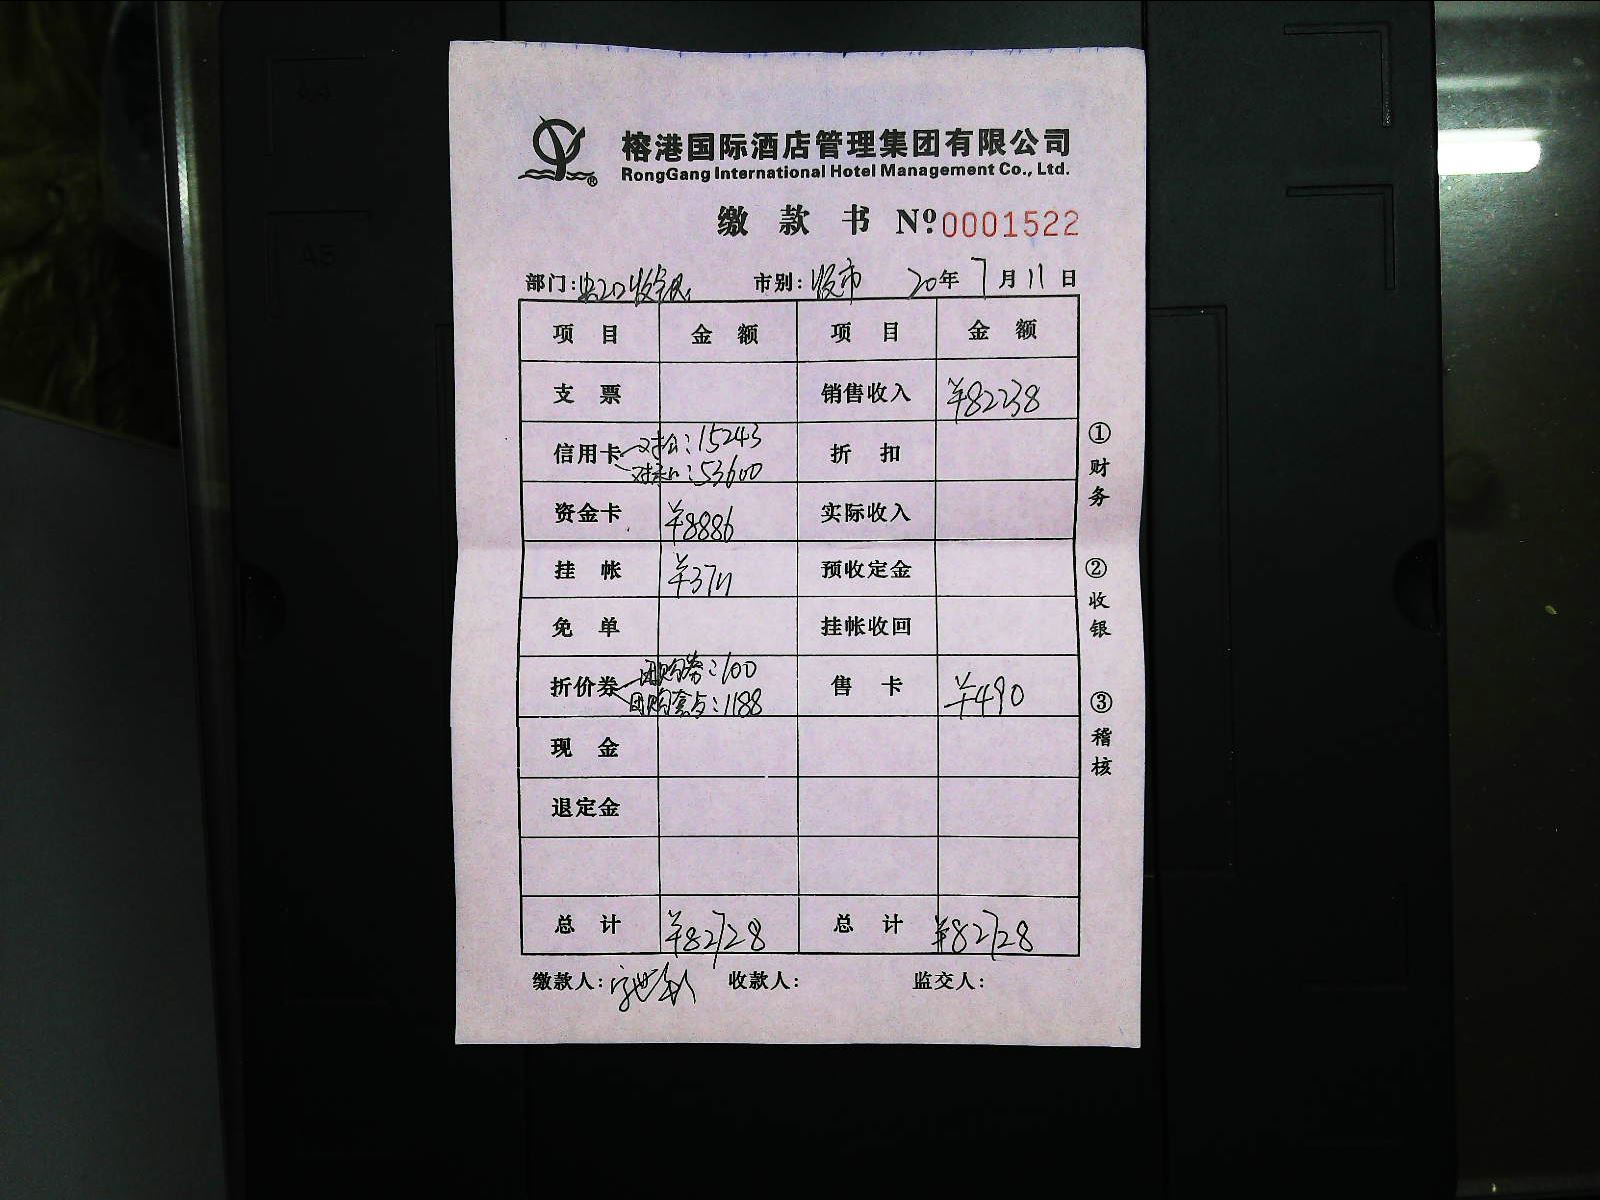 榕港国际酒店管理集团有限公司
RongGang International Hotel Management Co., Ltd.
缴款书 Nº 0001522
部门: 收银 市别: 市 20年7月11日
项目 金额 项目 金额
支票 销售收入 ¥82238
信用卡 对公:15243 折扣
:53600
资金卡 ¥8886 实际收入
挂帐 ¥3711 预收定金
免单 挂帐收回
折价券 团购券:100 售卡 ¥490
团购套餐:1188
现金
退定金
总计 ¥82728 总计 ¥82728
缴款人: 收款人: 监交人:
①财务
②收银
③稽核
A4
A5